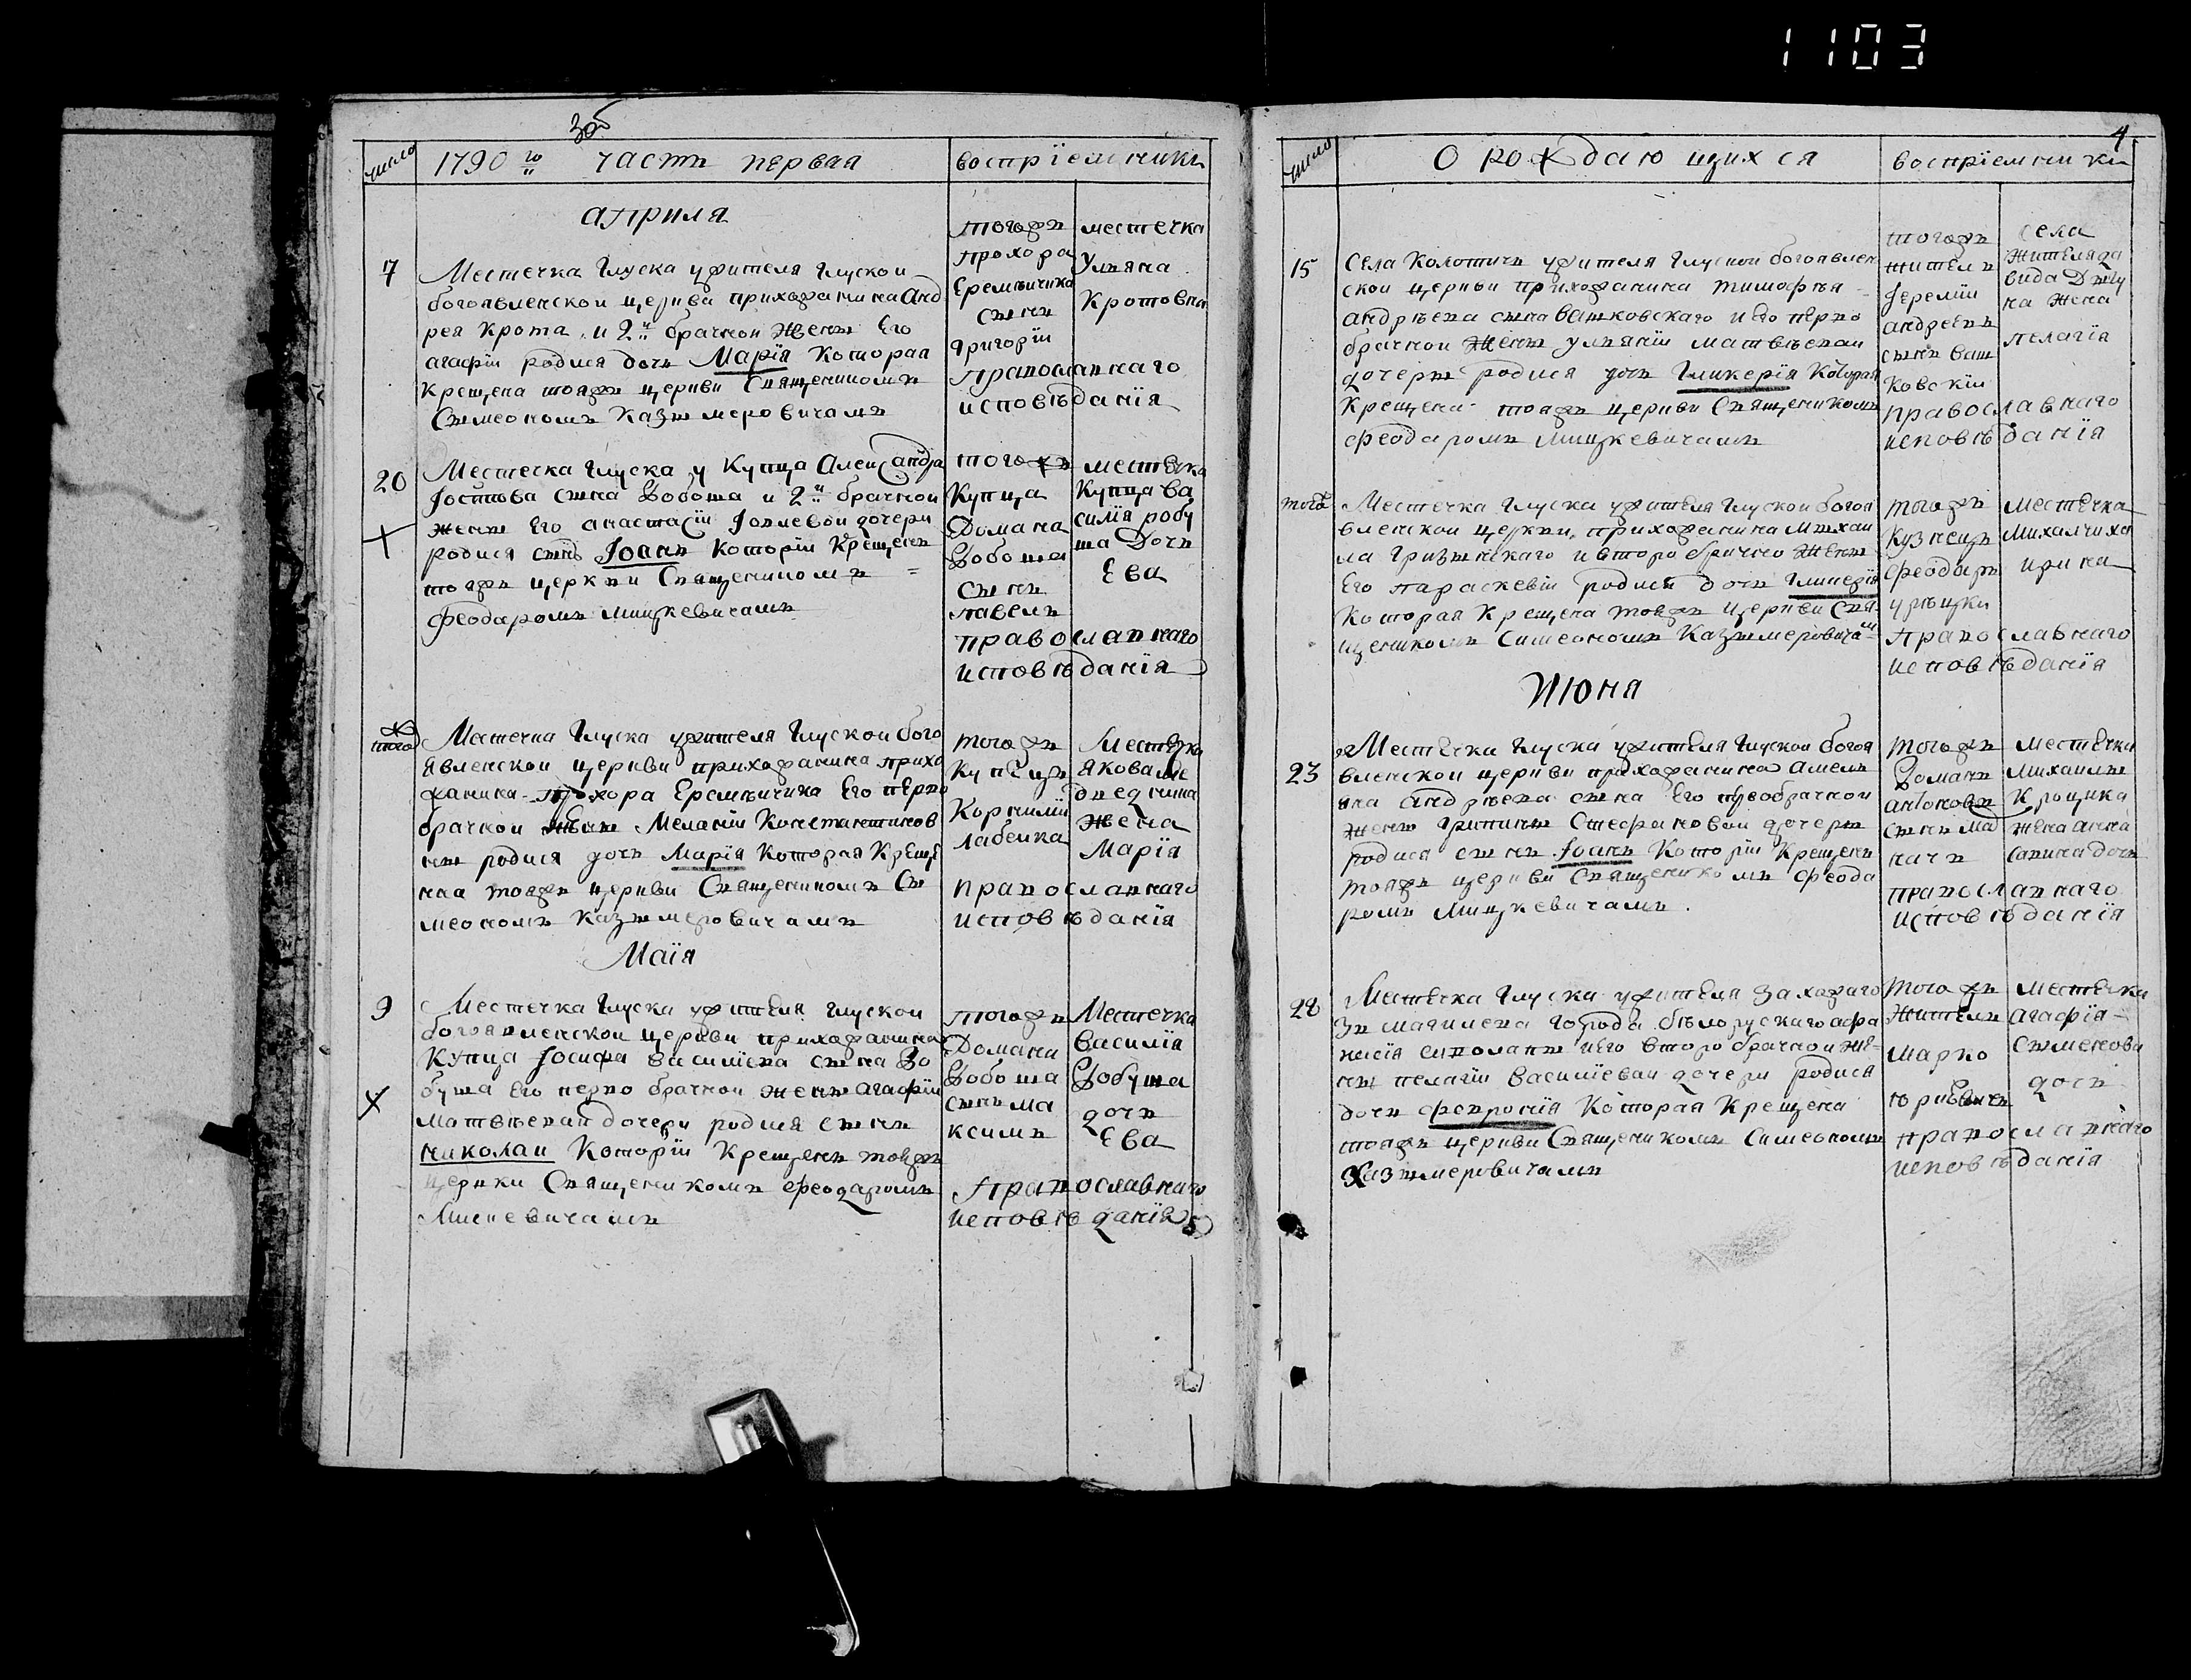 1103
30б
число
1790 го часть первая
воспрїемники
априля
7
Местечка Глуска ужителя глускои
богоявленскои церкви прихожанина Анд
рея Крота и 2и брачнои жены Его
агафїи родися дочь Марїя Которая
Крещена тояжъ церкви Священикомъ
Сымеономъ Казымеровичамъ
тогожъ
прохора
Еремѣичика
сынъ
григорїи
местечка
Ульяна
Кротовна
православнаго
исповѣданїя
20
Местечка Глуска у Купца Александра
Іостова сына Бобоша и 2и брачнои
жены Его анастасїи Іовлевои дочери
родися сынъ Іоанъ Которїи Крещенъ
тояжъ церкви Священикомъ =
Феодаромъ Мицкевичамъ
тогожъ
Купца
Домана
Бобоша
сынъ
павелъ
местечка
Купца Ва
силїя робу
ша Дочь
Ева
православнаго
исповѣданїя
тогож
Местечка Глуска ужителя Глускои бого
явленскои церкви прихожанина прихо
жанина прохора Еремѣичика Его перво
брачнои жены Меланїи Константинов
ны родися дочь Марїя Которая Креще
наа тояжъ церкви Священикомъ Сы
меономъ Казымеровичамъ
тогожъ
Купецъ
Корнилїи
лабенка
Местечка
якова
жена
Марїя
православнаго
исповѣданїя
Маїя
9
Местечка Глуска ужителя глускои
богоявленскои церкви прихожанина
Купца Іосифа василїева сына Бо
буша Его перво брачнои жены агафїи
матвѣеваи дочери родися сынъ
николаи Которїи Крещенъ тояжъ
церкви Священикомъ Феодаромъ
Мицкевичамъ
тогожъ
Домана
Бобоша
сынъ ма
ксимъ
Местечка
василїя
Бобуша
дочь
Ева
православнаго
исповѣданїя
4
число
О рождающихся
воспрїемники
15
Села Колотичъ ужителя Глускои богоявлен
скои церкви прихожанина тимофѣя
андрѣева сына вашковскаго и Его перво
брачнои жены ульянїи матвѣеваи
дочеры родися дочь Гликерїя Которая
Крещена тояжъ церкви Священикомъ
Феодаромъ Мицкевичамъ
тогожъ
жители
Іеремїи
андреевъ
сынъ ваш
ковскїи
села
жителя да
вида
на жена
пелагїя
православнаго
исповѣданїя
тогож
Местечка Глуска ужителя Глускои богоя
вленскои церкви прихожанина михаи
ла и второ брачно жены
Его параскевїи родися дочь Гликерїя
Которая Крещена тояжъ церкви Свя
щеникомъ Симеономъ Казымеровичам
тогожъ
Кузнецъ
Феодаръ
местечка
Михалчиха
ирина
православнаго
исповѣданїя
Июня
23
Местечка Глуска ужителя Глускои богоя
вленскои церкви прихожанина амель
яна андрѣева сына Его первобрачнои
жены Стефановаи дочеры
родися сынъ Іоанъ Которїи Крещенъ
тояжъ церкви Священикомъ Феода
ромъ Мицкевичамъ.
тогожъ
Романъ
антоновъ
сынъ
местечка
Михаилы
жена анна
дочь
православнаго
исповѣданїя
28
Местечка Глуска ужителя захожаго
зъ магилева города бѣлорускаго афа
насїя и Его второ брачнои же
ны пелагїи василїеваи дочери родися
дочь Февронїя Которая Крещена
тояжъ церкви Священикомъ Симеономъ
Казымеровичамъ
тогожъ
жители
Марко
местечка
агафїя
сыменова
дочь
православнаго
исповѣданїя